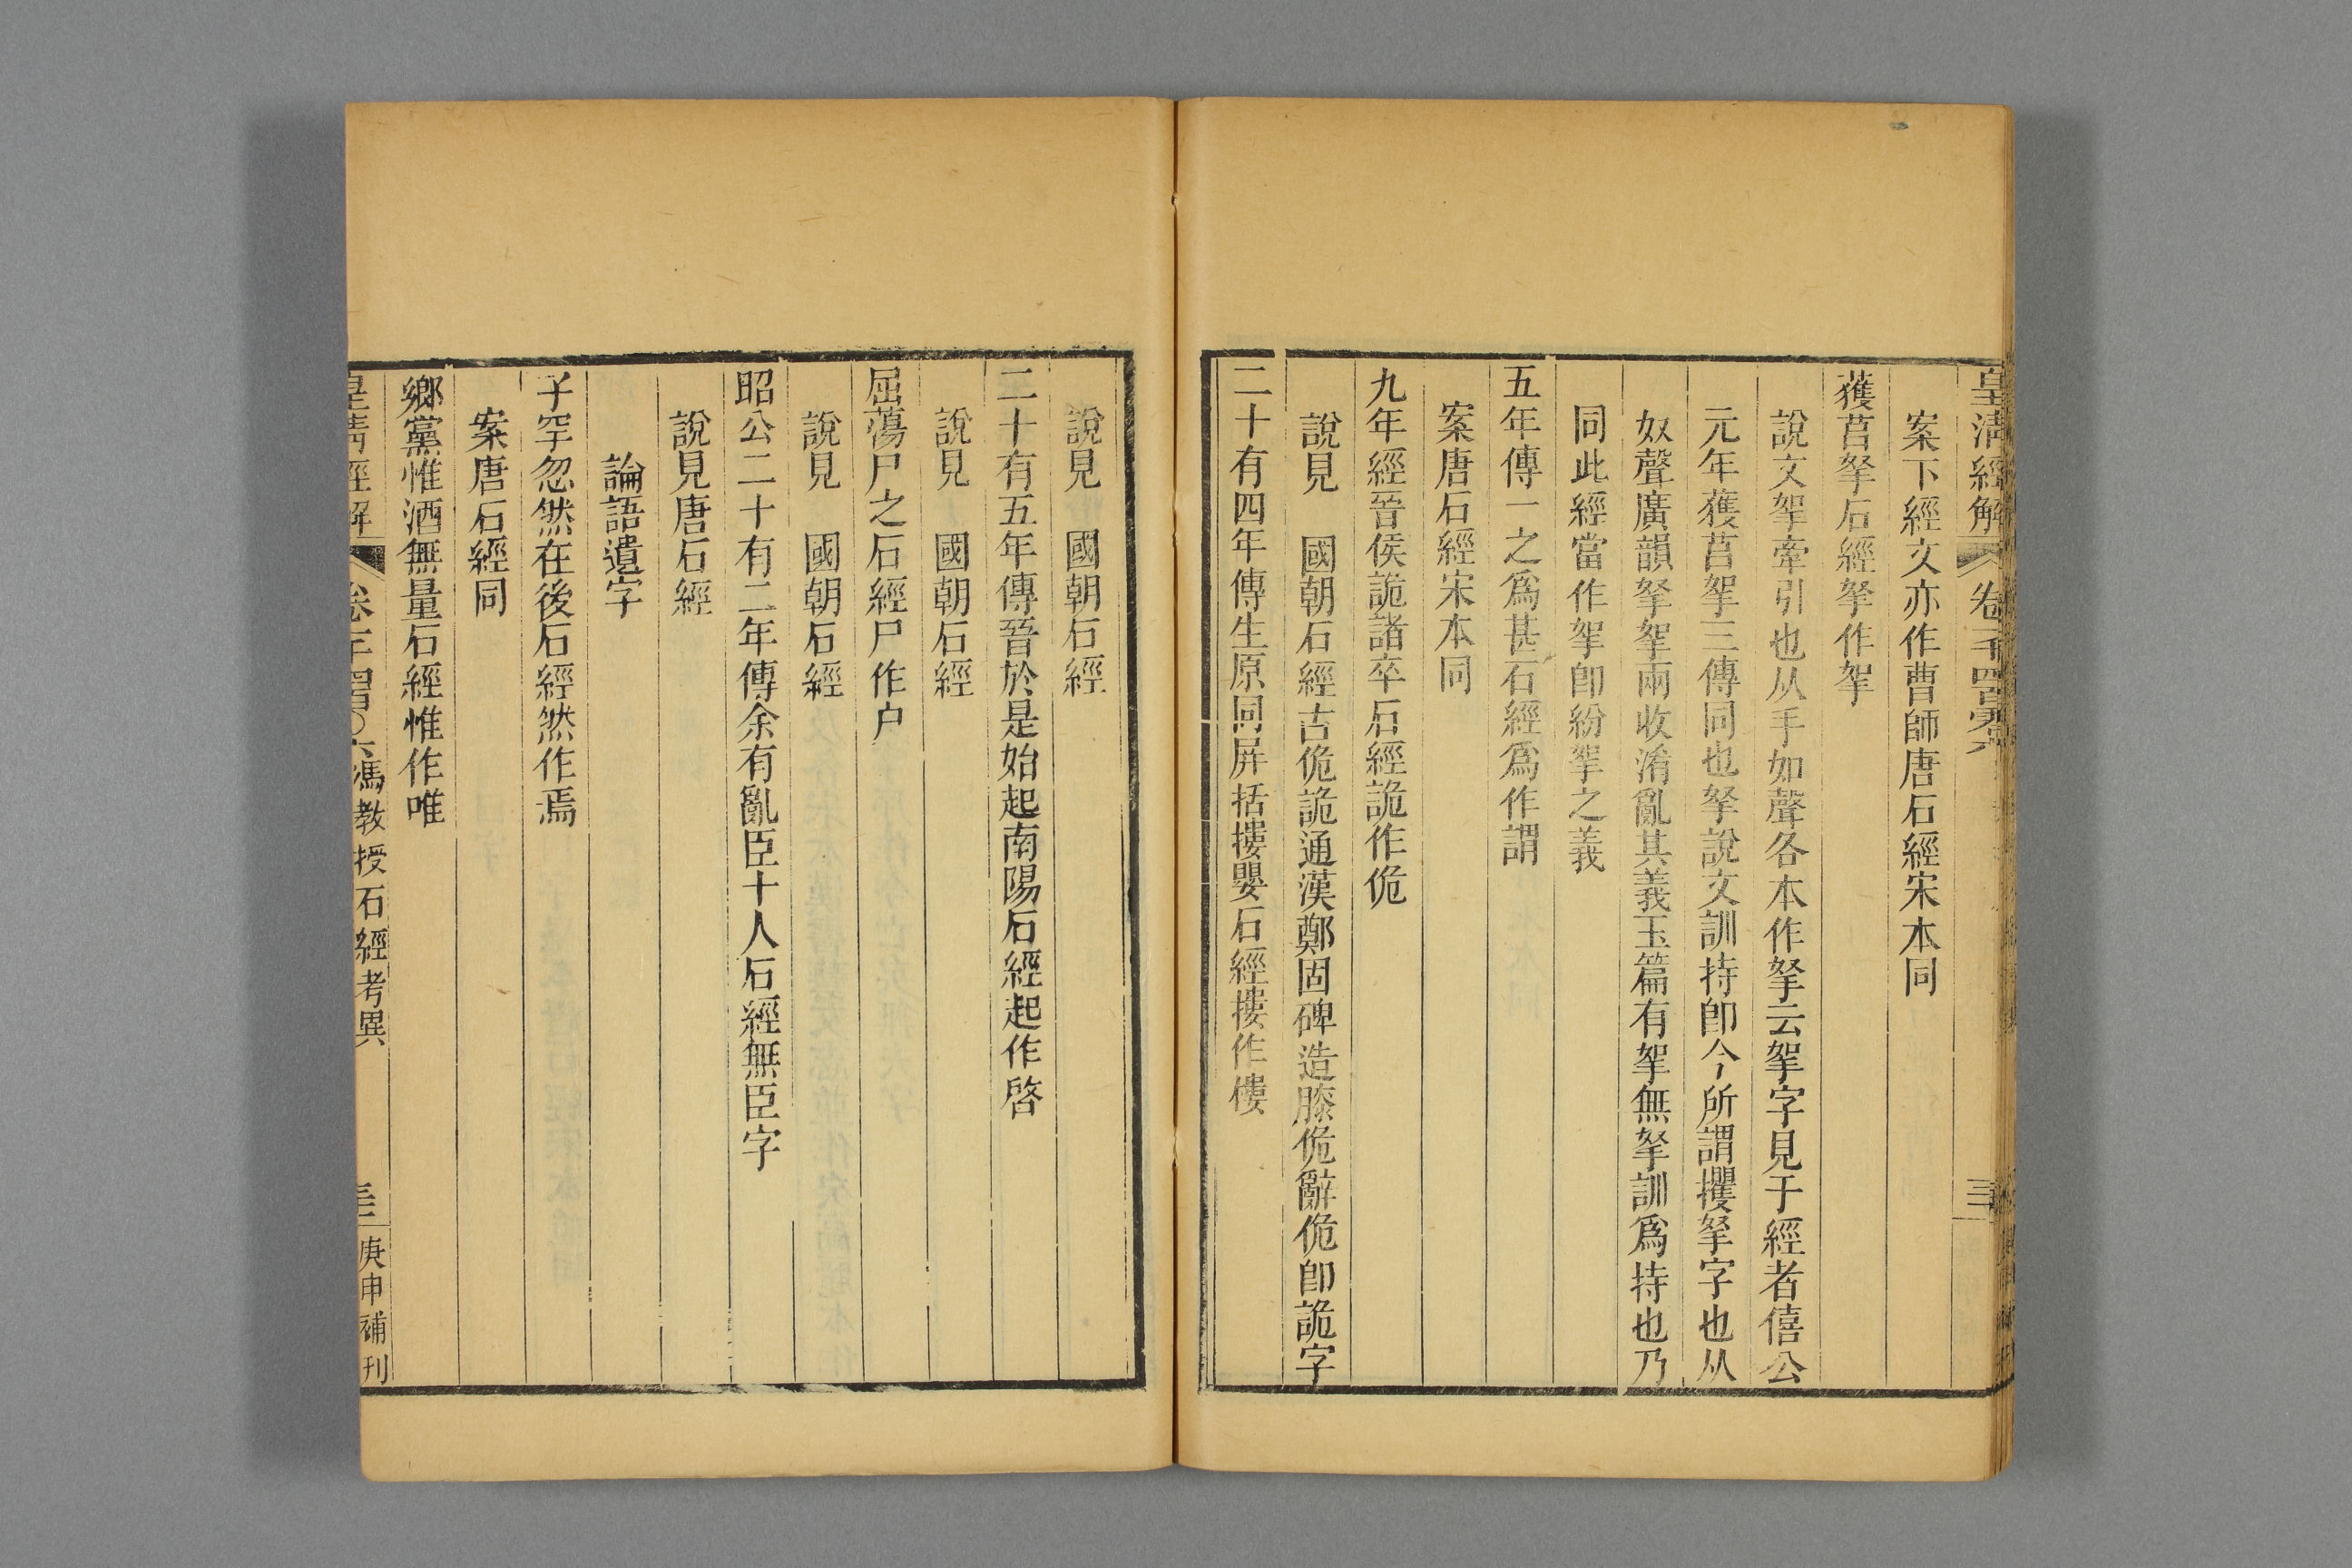 皇清經解 卷一千四百六
案下經文亦作曹師唐石經宋本同
獲莒拏石經拏作挐
說文挐牽引也从手如聲各本作拏云挐字見于經者僖公
元年獲莒挐三傳同也拏說文訓持卽今所謂攫拏字也从
奴聲廣韻拏挐兩收淆亂其義玉篇有挐無拏訓爲持也乃
同此經當作挐卽紛挐之義
五年傳一之爲甚石經爲作謂
案唐石經宋本同
九年經晉侯詭諸卒石經詭作佹
說見　國朝石經古佹詭通漢鄭固碑造膝佹辭佹卽詭字
二十有四年傳生原同屛括摟嬰石經摟作僂
說見　國朝石經
二十有五年傳晉於是始起南陽石經起作啓
說見　國朝石經
屈蕩尸之石經尸作户
說見　國朝石經
昭公二十有二年傳余有亂臣十人石經無臣字
說見唐石經
論語遺字
子罕忽然在後石經然作焉
案唐石經同
鄉黨惟酒無量石經惟作唯
皇清經解 卷一千四百六 馮教授石經考異 庚申補刊